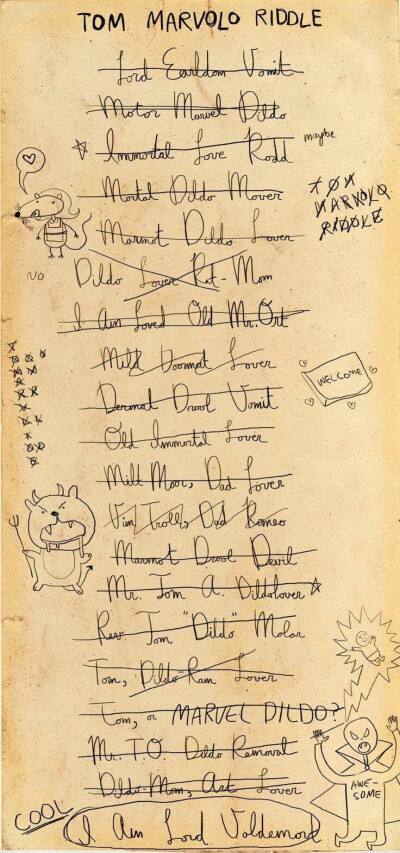 TOM MARVOLO RIDDLE
Lord Earldom Vomit
Motor Marvel Dildo
Immortal Love Rodd maybe
Mortal Dildo Mover
TOM
MARVOLO
RIDDLE
Marmot Dildo Lover
NO
Dildo Lover Rat-Mom
I Am Loved Old Mr. Ort
Mild Doormat Lover
WELCOME
Dermal Drool Vomit
Old Immortal Lover
Milt Moor, Dad Lover
Vim Troll, Dad Romeo
Marmot Drool Devil
Mr. Tom A. Dildolover
Rev Tom "Dildo" Molar
Tom, Dildo Ram Lover
Tom, or MARVEL DILDO?
Mr. T.O. Dildo Removal
Dildo-Mom, Art Lover
AWE-
SOME
COOL
I Am Lord Voldemort